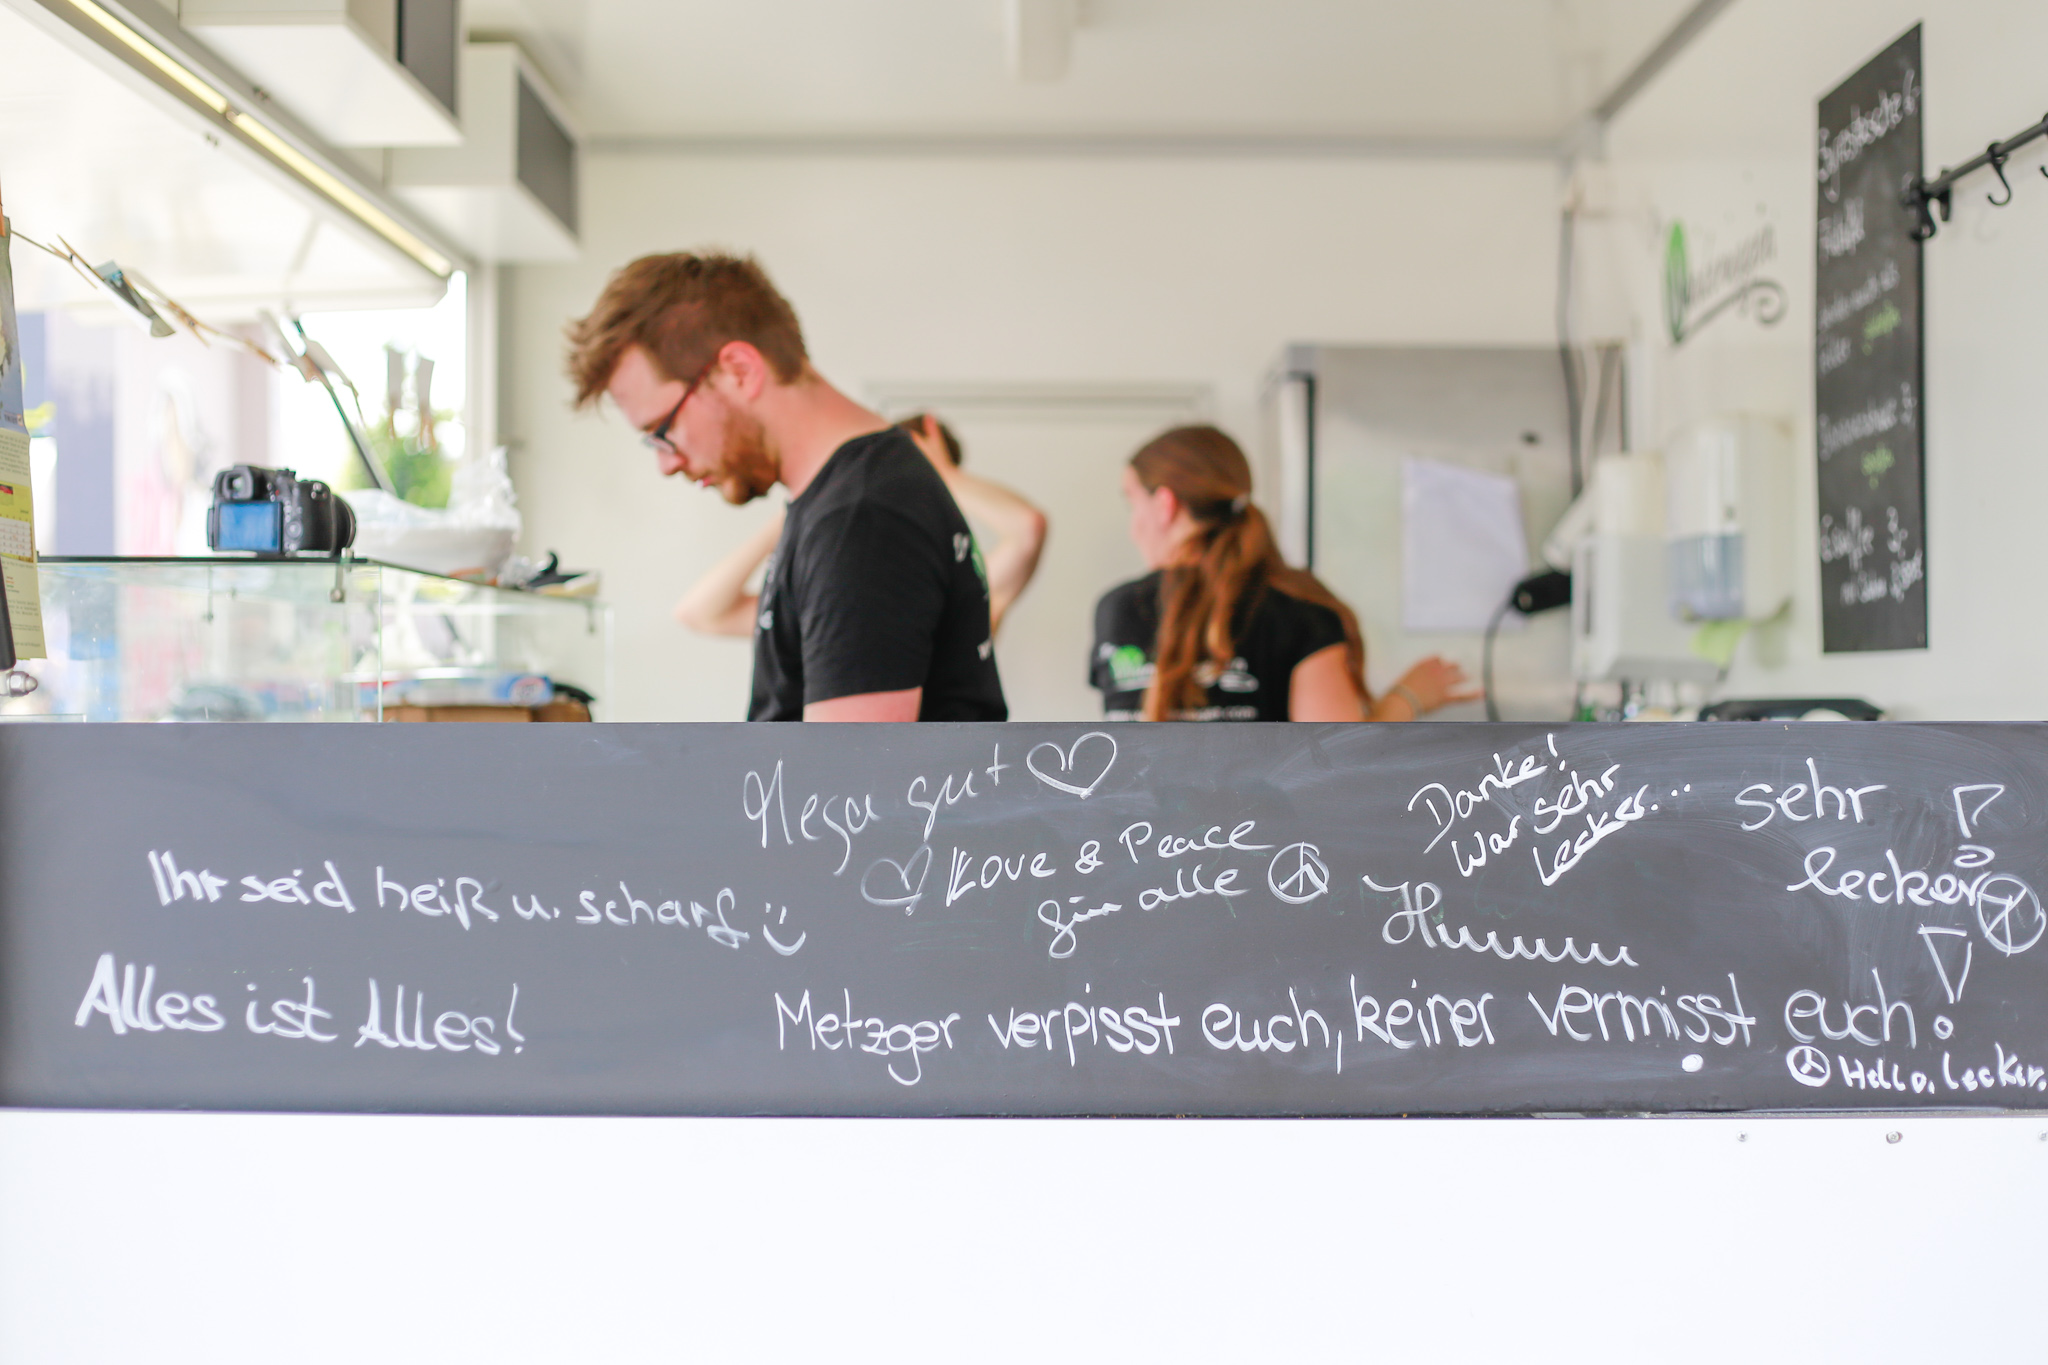 Mega gut
Love & Peace
für alle
Danke!
War sehr
Lecker...
sehr
lecker
Hmmmm
Ihr seid heiß u. scharf
Alles ist Alles!
Metzger verpisst euch, keiner vermisst euch!
Hello, lecker.